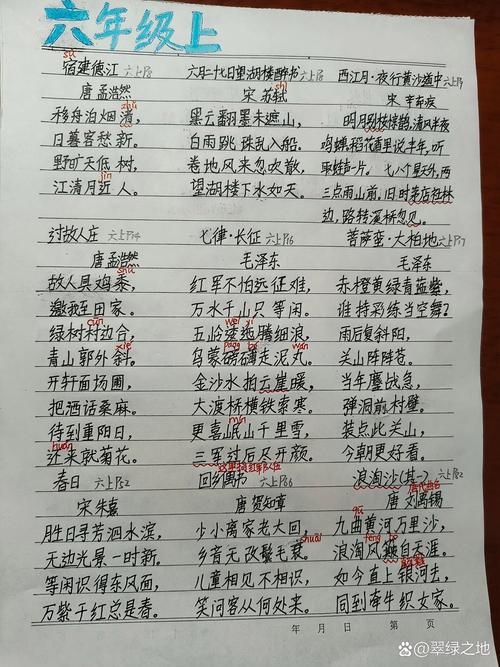 六年级上
sù
宿建德江 六上P8
唐 孟浩然
zhǔ
移舟泊烟渚,
日暮客愁新。
野旷天低树,
jìn
江清月近人。
六月二十七日望湖楼醉书 六上P8
shì
宋 苏轼
黑云翻墨未遮山,
白雨跳珠乱入船。
卷地风来忽吹散,
望湖楼下水如天。
西江月·夜行黄沙道中 六上P9
宋 辛弃疾
明月别枝惊鹊,清风半夜
鸣蝉。稻花香里说丰年,听
取蛙声一片。七八个星天外,两
三点雨山前。旧时茅店社林
边,路转溪桥忽见。
过故人庄 六上P14
唐 孟浩然
shǔ
故人具鸡黍,
邀我至田家。
cūn
绿树村边合,
xié
青山郭外斜。
开轩面场圃,
把酒话桑麻。
待到重阳日,
huán
还来就菊花。
七律·长征 六上P16
毛泽东
红军不怕远征难,
万水千山只等闲。
wēi yí
五岭逶迤腾细浪,
páng bó wán
乌蒙磅礴走泥丸。
金沙水拍云崖暖,
大渡桥横铁索寒。
mín
更喜岷山千里雪,
三军过后尽开颜。
菩萨蛮·大柏地 六上P17
毛泽东
赤橙黄绿青蓝紫,
谁持彩练当空舞?
雨后复斜阳,
关山阵阵苍。
当年鏖战急,
弹洞前村壁。
装点此关山,
今朝更好看。
春日 六上P52
宋 朱熹
胜日寻芳泗水滨,
无边光景一时新。
等闲识得东风面,
万紫千红总是春。
回乡偶书 六上P86
唐 贺知章
少小离家老大回,
shuāi
乡音无改鬓毛衰。
儿童相见不相识,
笑问客从何处来。
浪淘沙(其一) 六上P82
唐 刘禹锡
qū
九曲黄河万里沙,
bǒ
浪淘风簸自天涯。
如今直上银河去,
同到牵牛织女家。
年 月 日 第 页
翠绿之地